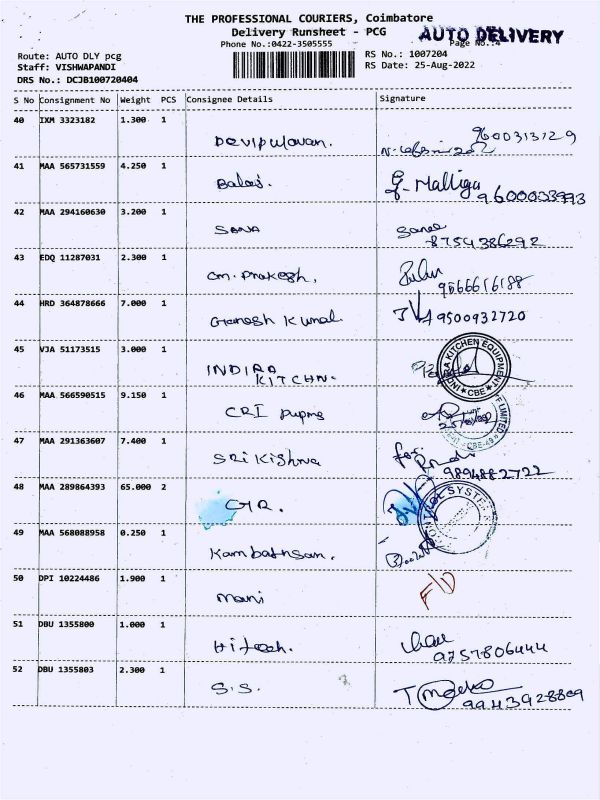 THE PROFESSIONAL COURIERS, Coimbatore
Delivery Runsheet - PCG
Phone No.:0422-3505555
AUTO DELIVERY
Page No.:4
Route: AUTO DLY pcg
Staff: VISHWAPANDI
DRS No.: DCJB100720404
RS No.: 1007204
RS Date: 25-Aug-2022
S No Consignment No Weight PCS Consignee Details Signature
40 IXM 3323182 1.300 1
9600313129
41 MAA 565731559 4.250 1
Balaji. G. Malliga
9600003993
42 MAA 294160630 3.200 1
SANA Sana
8754386292
43 EDQ 11287031 2.300 1
cm. Prakash.
9566616188
44 HRD 364878666 7.000 1
Ganesh Kumal. 9500932720
45 VJA 51173515 3.000 1
INDIRA
KITCHN.
INDIRA KITCHEN EQUIPMENT
CBE
46 MAA 566590515 9.150 1
CRI Pupms
LIMITED
CBE-49
47 MAA 291363607 7.400 1
SRi Kishna for
9894882722
48 MAA 289864393 65.000 2
GR.
CONTROL SYSTEMS
49 MAA 568088958 0.250 1
50 DPI 10224486 1.900 1
Mani F/D
51 DBU 1355800 1.000 1
Hitech.
9757806444
52 DBU 1355803 2.300 1
S.S.
9943928809